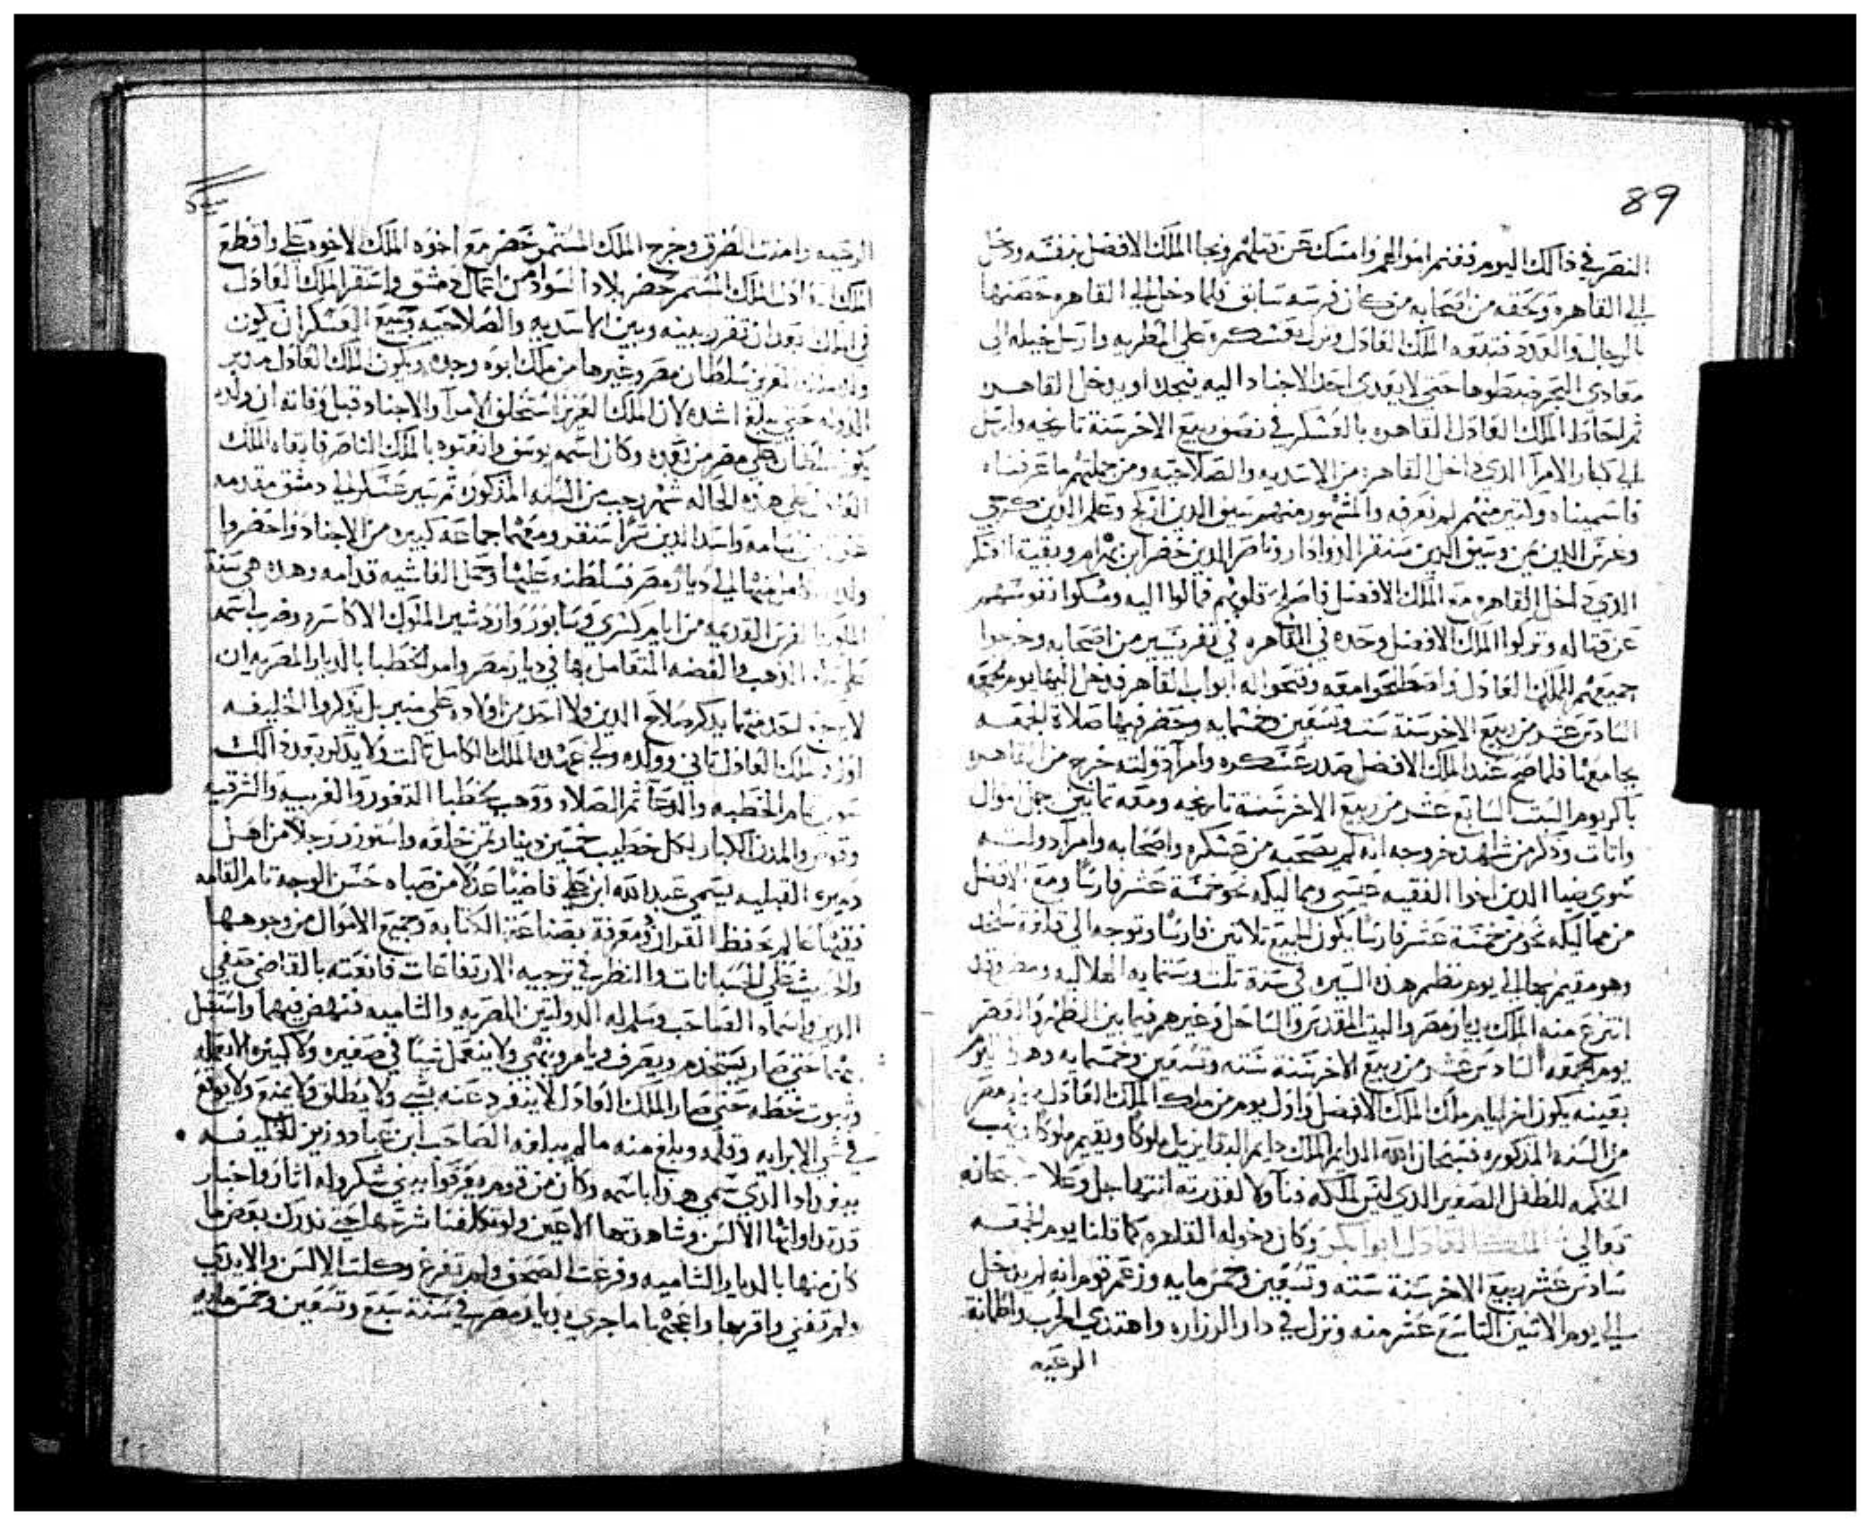 89
النصر في ذالك اليوم فغنم اموالهم وامسك عن قتلهم ونجا الملك الافضل بنفسه ودخل
الي القاهره ولحقه من اصحابه من كان فرسه سابق فلما دخل الي القاهره حصنها
بالرجال والعدد فتبعه الملك العادل ونزل بعسكره علي المطريه وارسل خيله الي
معادي البحر ضبطوها حتي لا يعدي احد الاجناد اليه ينجده او يدخل القاهره
ثم احاط الملك العادل القاهره بالعسكر في نصف ربيع الاخر سنة تاريخه وارسل
الي كبار الامرآ الذي داخل القاهره من الاسديه والصلاحيه ومن جملتهم ما عرفناه
فاسميناه وكتير منهم لم نعرفه والمشهور منهم سيف الدين ازكج وعلم الدين كرجي
وعز الدين وسيف الدين سنقر الدوادار وناصر الدين خضر ابن بهرام وبقية العسكر
الذي داخل القاهره مع الملك الافضل فاصلح قلوبهم فمالوا اليه ومسكوا نفوسهم
عن قتاله وتركوا الملك الافضل وحده في القاهره في نفر يسير من اصحابه وخرجوا
جميعهم للملك العادل واصطلحوا معه وفتحوا له ابواب القاهره فدخل اليها يوم الجمعه
السادس عشر من ربيع الاخر سنة ست وتسعين وخمسمايه وحضر فيها صلاة الجمعه
بجامعها فلما صح عند الملك الافضل غدر عسكره وامرآ دولته خرج من القاهره
باكر يوم السبت السابع عشر من ربيع الاخر سنة تاريخه ومعه تمانين جمل اموال
واتات وذكر من شاهد خروجه انه لم يصحبه من عسكره واصحابه وامرآ دولته
سوي ضيا الدين اخوا الفقيه عيسي ومماليكه نحو خمسة عشر فارسًا ومع الافضل
من مماليكه نحو من خمسة عشر فارسًا يكون الجميع تلاتين فارسًا وتوجه الي قلعة صلخد
وهو مقيم بها الي يوم نظم هذه السيره في سنة تلت وستمايه الهلاليه
انتزع منه الملك بديار مصر والبيت المقدس والساحل وغيرهم فيما بين الظهر والعصر
يوم الجمعه السادس عشر من ربيع الاخر سنة سته وتسعين وخمسمايه وهذا اليوم
بعينه يكون اخر ايام ملك الملك الافضل واول يوم من ملك الملك العادل مصر
من السنه المذكوره فسبحان الله الدايم الملك دايم البقا يزيل ملوكًا ويقيم ملوكًا يهب
الحكمه للطفل الصغير الذي ليس لملكه فنآ ولا لقدرته انتها جل وعلا سبحانه
تعالي الملك العادل ابوا بكر وكان دخوله القاهره كما قلنا يوم الجمعه
سادس عشر ربيع الاخر سنة سته وتسعين وخمس مايه وزعم قوم انه لم يدخل
الي يوم الاتنين التاسع عشر منه ونزل في دار الوزاره واهتدي الحرب واطمانة
الرعيه
الرعيه وامنت الطرق وخرج الملك المستمر خضر مع اخوه الملك لاخوه علي واقطع
الملك العادل الملك المستمر خضر بلاد السواد من اعمال دمشق واستقر الملك العادل
في الملك بعد ان تقرر بينه وبين الاسديه والصلاحيه وجميع العسكر ان يكون
ولد الملك العزيز سلطان مصر وغيرها من ملك ابوه وجده ويكون الملك العادل مدبر
الدوله حتي يبلغ اشده لان الملك العزيز استحلف الامرآ والاجناد قبل وفاته ان ولده
يكون سلطان علي مصر من بعده وكان اسمه يوسف وانعتوه بالملك الناصر فابقاه الملك
العادل علي هذه الحاله شهر رجب من السنه المذكوره ثم سير عسكر الي دمشق مقدمه
اسامه واسد الدين سرا سنقر ومعهما جماعه كبيره من الاجناد واحضروا
ولده منها الي ديار مصر فسلطنه عليها وحمل الغاشيه قدامه وهذه هي سنة
الملوك الفرس القديمه من ايام كسري وسابور وازدشير الملوك الاكاسره وضرب اسمه
علي الذهب والفضه المتعامل بها في ديار مصر وامر الخطبا بالديار المصريه ان
لا يرجع احد منهم يذكر صلاح الدين ولا احد من اولاده علي منبر بل يذكروا الخليفه
اول والملك العادل تاني وولده ولي عهده الملك الكامل تالت ولا يذكر بعد ذالك
تمام الخطبه والدعآ ثم الصلاه ووهب لخطبا الثغور والغربيه والشرقيه
وقوص والمدن الكبار لكل خطيب خمسين دينار تمن خلعه واستوزر رجلاً من اهل
دميره القبليه يسمي عبد الله ابن علي قاضيًا عدلاً من صباه حسن الوجه تام القامه
فقيهًا عالم بحفظ القران ومعرفة بصناعة الكتابه وجميع الاموال من وجوهها
والحديث علي الحسبانات والنظر في ترجيه الارتفاعات فانعته بالقاضي صفي
الدين واسماه الصاحب وسلم له الدولتين المصريه والشاميه فنهض فيهما واستقل
بهما حتي صار يستخدم ويصرف ويامر وينهي ولا ينعمل شيًا في صغيره ولا كبيره الا بعمله
وثبوت خطه حتي صار الملك العادل لا ينفرد عنه بشي ولا يطلق ولا يمنع ولا يوقع
في شي الا برايه وقلمه وبلغ منه ما لم يبلغه الصاحب ابن عباد وزير الخليفه
ببغداد الذي سمي هذا باسمه وكان من قوم يعرفوا ببني شكر وله اثار واخبار
قدتداولتها الالسن وشاهدتها الاعين ولو تكلفنا شرحها حتي ندرك بعض ما
كان منها بالديار الشاميه وفرغت الصحف ولم تفرغ وكلت الالسن والايدي
ولم تفني واقربها واعجبها ما جري بديار مصر في سنة سبع وتسعين وخمس مايه